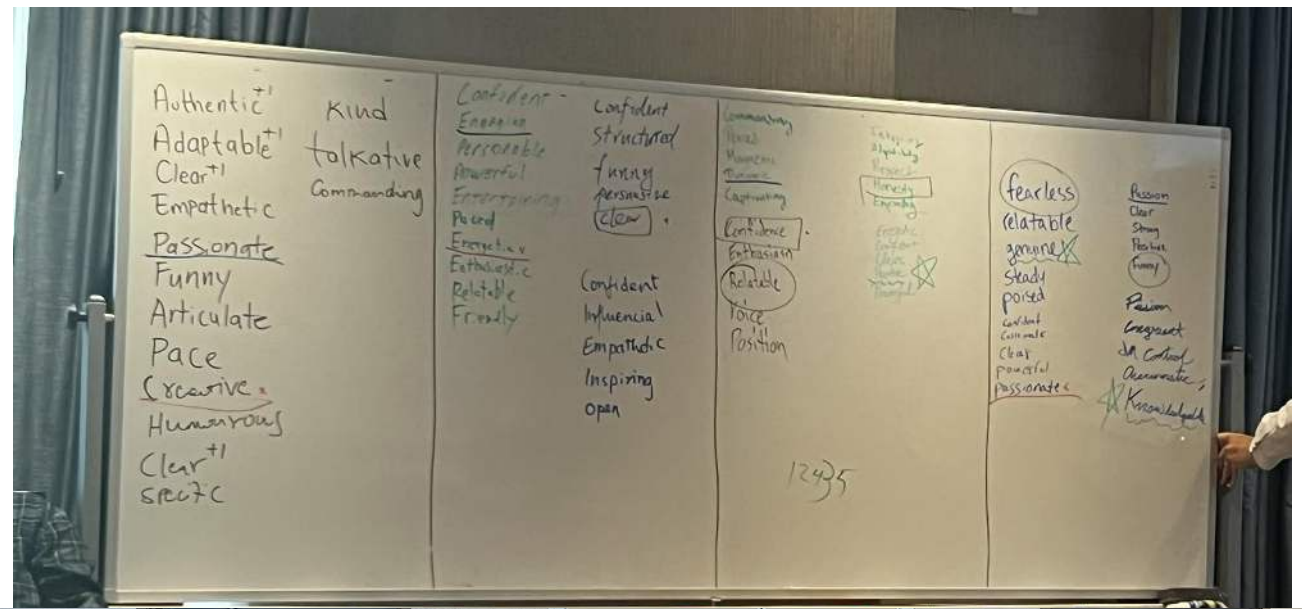 Authentic +1
Adaptable +1
Clear +1
Empathetic
Passionate
Funny
Articulate
Pace
Creative
Humurous
Clear +1
Specific
Kind
talkative
Commanding
Confident
Personable
Powerful
Entertaining
Paced
Energetic
Enthusiastic
Relatable
Friendly
Confident
Structured
funny
persuasive
Clear
Confident
Influencial
Empathetic
Inspiring
Open
Commanding
Dynamic
Captivating
Confidence
Enthusiasm
Relatable
Voice
Position
Respect
Honesty
Empathy
12435
fearless
relatable
genuine
Steady
poised
Confident
Clear
powerful
passionate
Passion
Clear
Strong
Positive
Funny
Passion
Congruent
In Control
Knowledgable